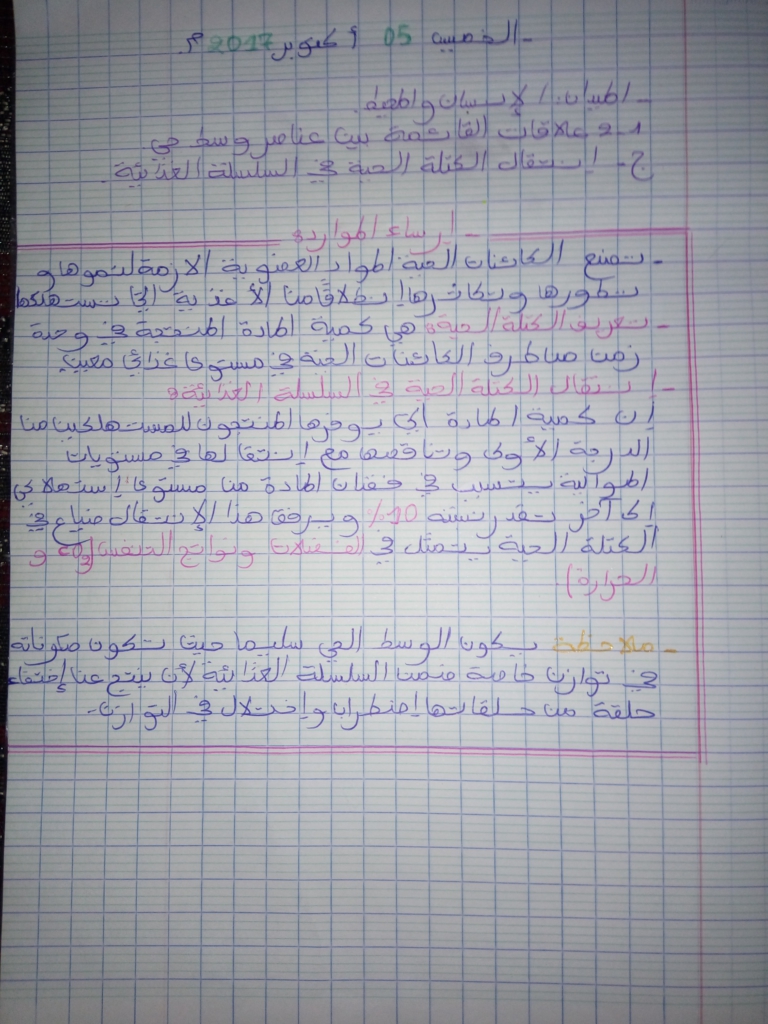 - الخميس 05 أكتوبر 2017 م.
- الميدان: الإنسان والمحيط.
1-2 علاقات القائمة بين عناصر وسط حي
ج- إنتقال الكتلة الحية في السلسلة الغذائية.
- إرساء الموارد:
- تصنع الكائنات الحية المواد العضوية الازمة لنموها و
تطورها وتكاثرها إنطلاقًا من الأغذية التي تستهلكها
- تعريف الكتلة الحية: هي كمية المادة المنتجة في وحدة
زمن من طرف الكائنات الحية في مستوى غذائي معين.
- إنتقال الكتلة الحية في السلسلة الغذائية:
إن كمية المادة التي يوفرها المنتجون للمستهلكين من
الدرجة الأولى وتناقصها مع إنتقالها في مستويات
الموالية يتسبب في فقدان المادة من مستوى إستهلاكي
إلى آخر تقدر نسبته 10% ويرفق هذا الإنتقال ضياع في
الكتلة الحية يتمثل في الفضلات ونواتج التنفس (CO2 و
الحرارة).
- ملاحظة: يكون الوسط الحي سليما حيث تكون مكوناته
في توازن خاصة ضمن السلسلة الغذائية لأن ينتج عن إختفاء
حلقة من حلقاتها إضطراب وإختلال في التوازن.